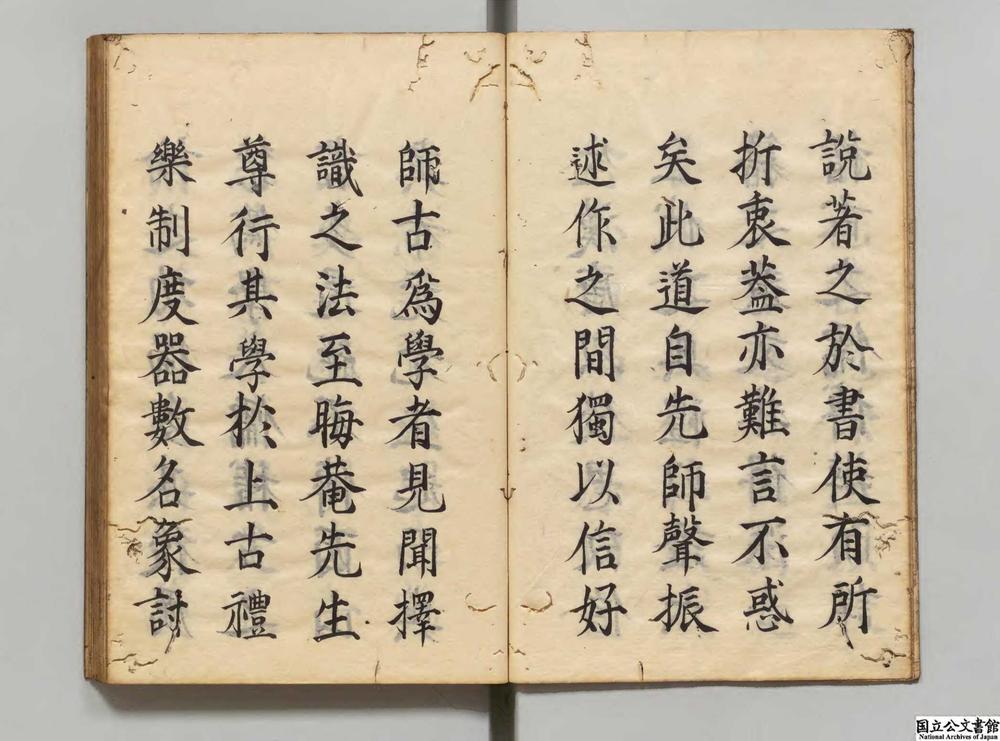 說著之於書使有所
折衷葢亦難言不惑
矣此道自先師聲振
述作之間獨以信好
師古爲學者見聞擇
識之法至晦菴先生
尊行其學於上古禮
樂制度器數名象討
国立公文書館
National Archives of Japan